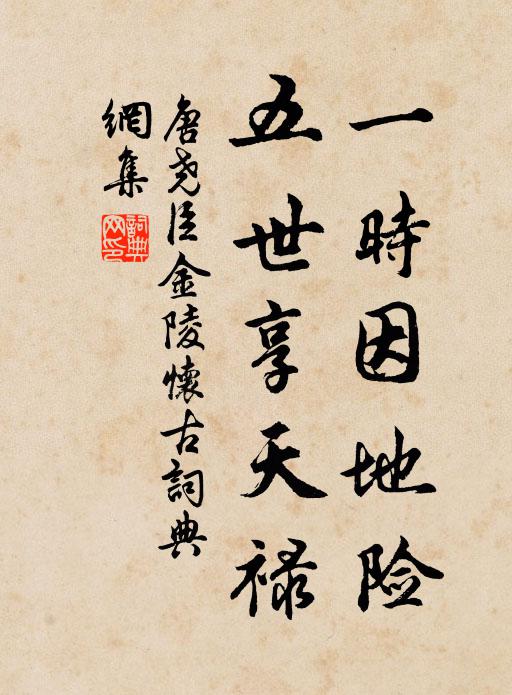 一時因地险
五世享天禄
唐尧臣金陵懷古詞典
網集
詞典网印